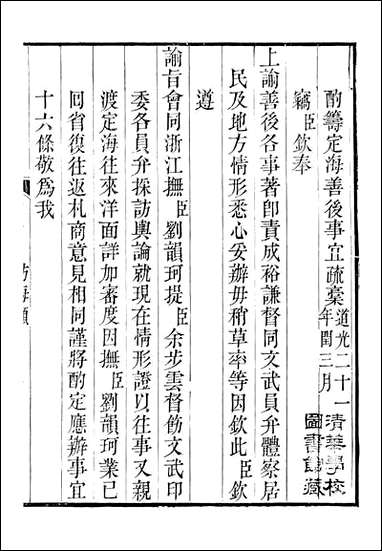 酌籌定海善後事宜疏藁道光二十一年閏三月
竊臣欽奉
上諭善後各事著卽責成裕謙督同文武員弁體察居
民及地方情形悉心妥辦毋稍草率等因欽此臣欽
遵
諭旨會同浙江撫臣劉韻珂提臣余步雲督飭文武印
委各員弁採訪輿論就現在情形證以往事又親
渡定海往來洋面詳加審度因撫臣劉韻珂業已
回省復往返札商意見相同謹將酌定應辦事宜
十六條敬爲我
清華學校
圖書館藏